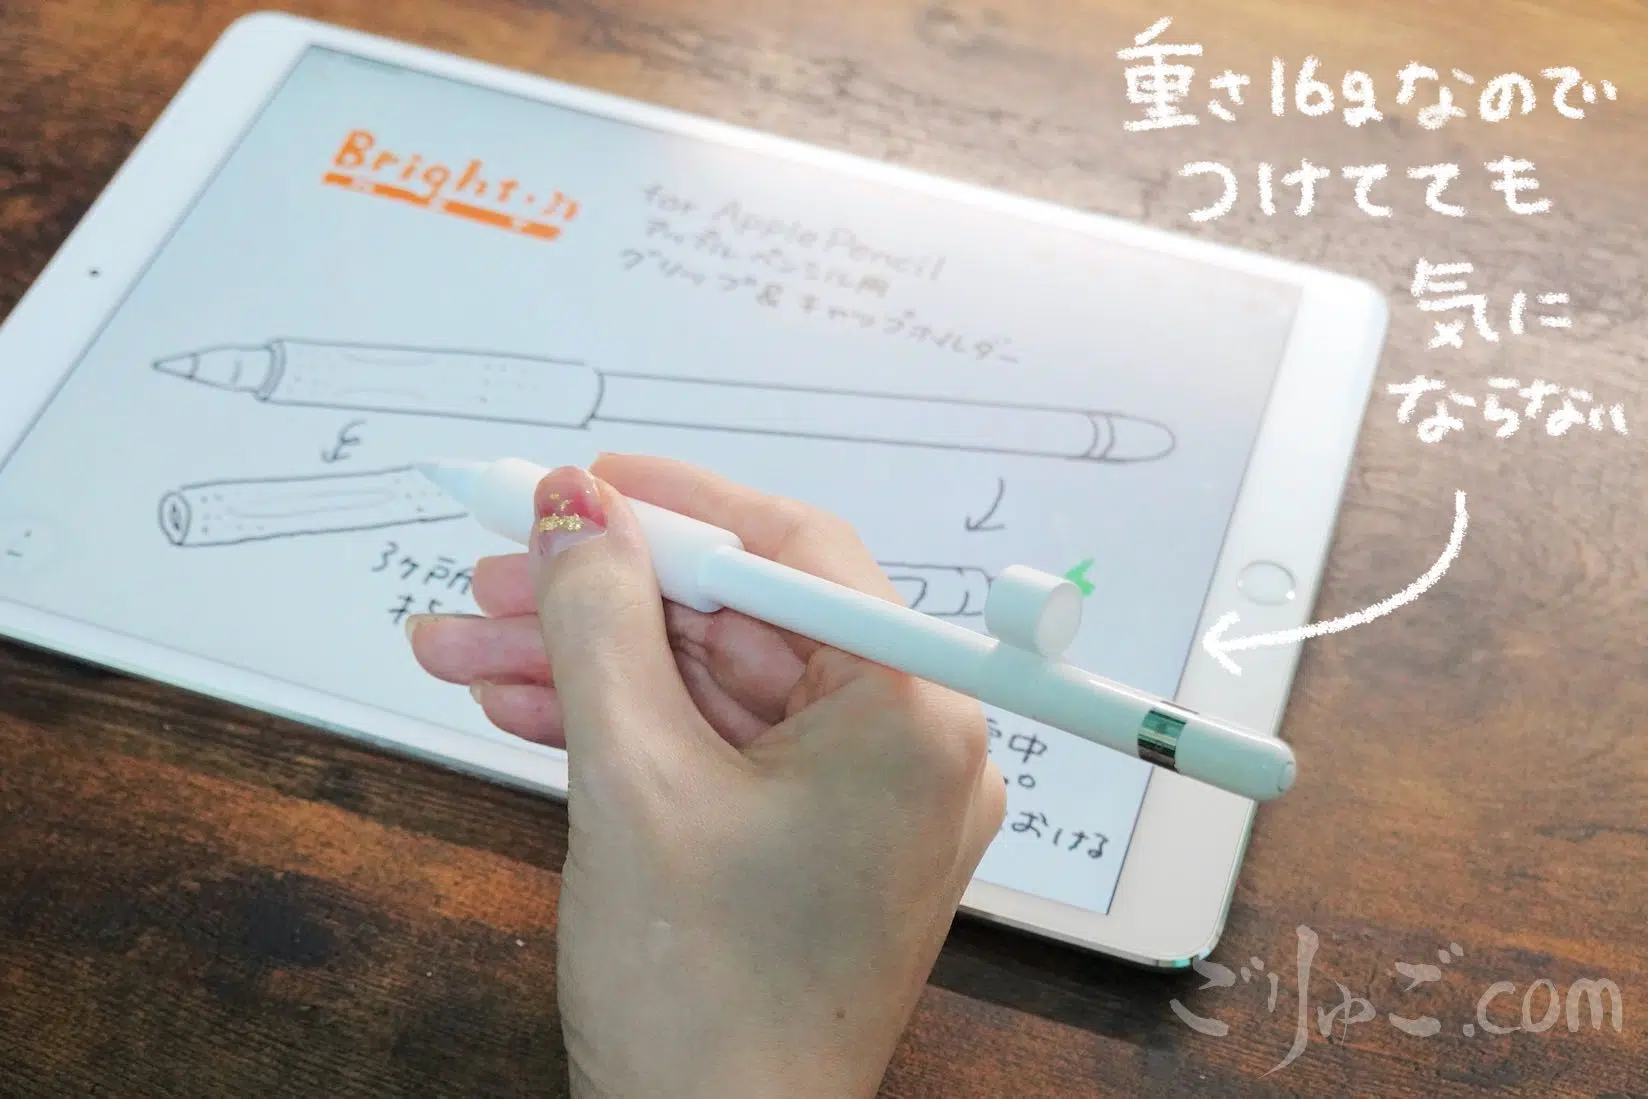 重さ16gなので
つけてても
気に
ならない
Bright.
for Apple Pencil
アップルペンシル用
グリップ&キャップホルダー
3ヶ所
中
おける
ごりゅご.com